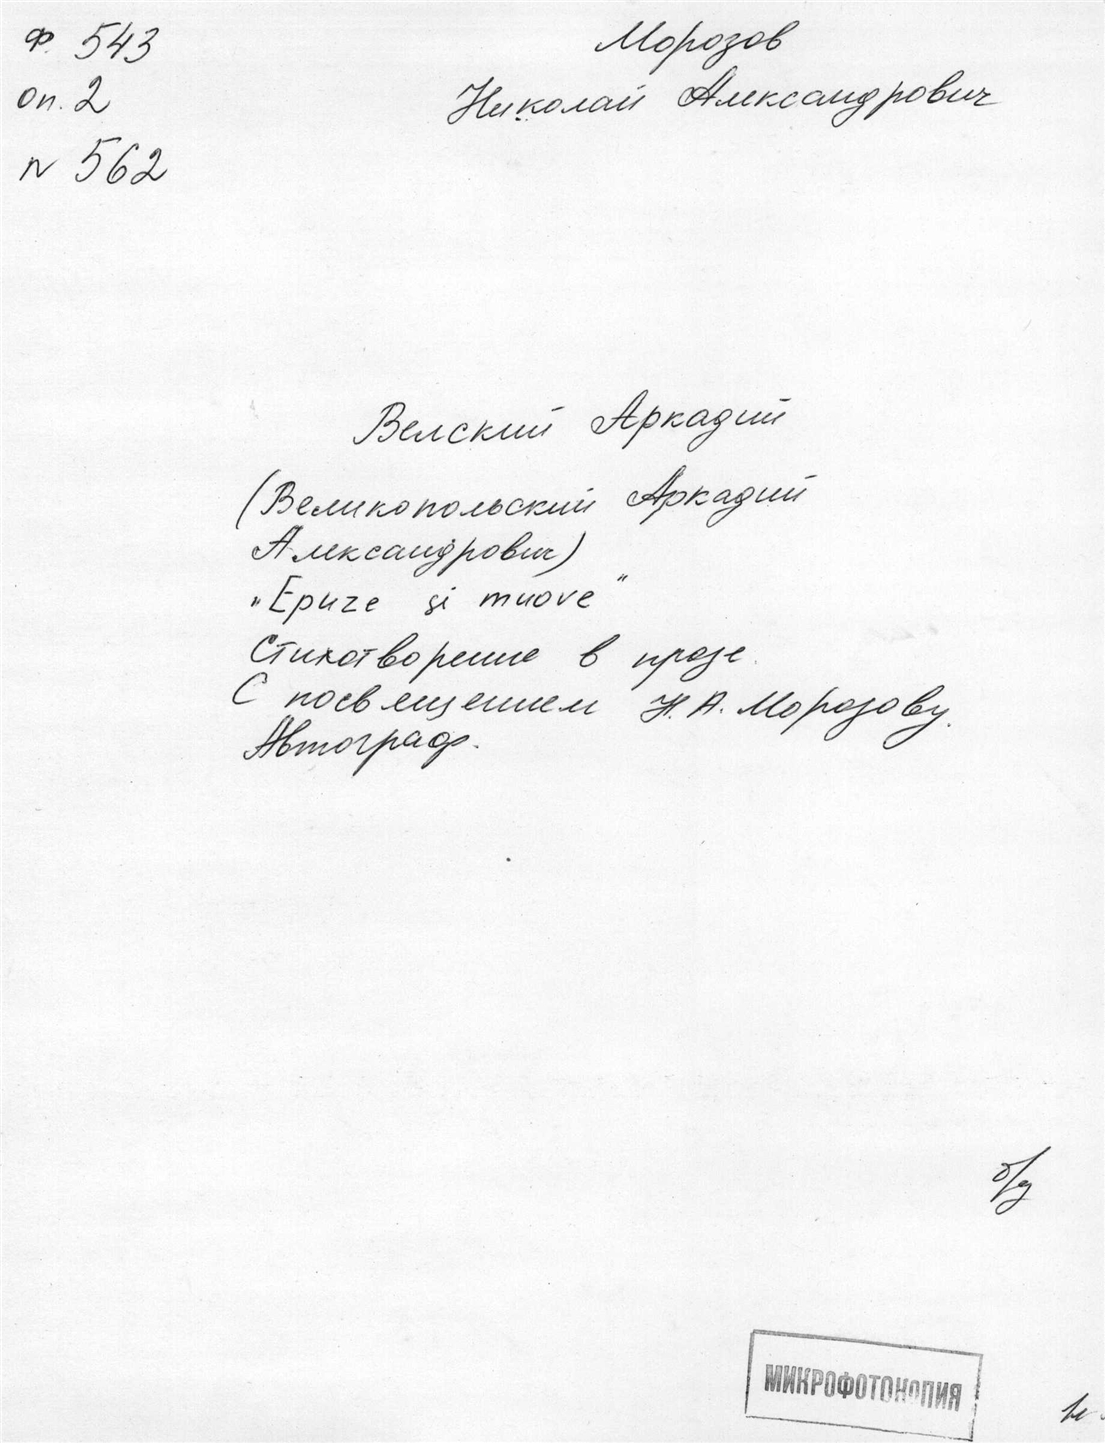 Ф. 543
оп. 2
N 562
Морозов
Николай Александрович
Велский Аркадий
(Великопольский Аркадий
Александрович)
„Epuze si muove"
Стихотворение в прозе.
С посвящением Н.А. Морозову.
Автограф.
б/д
МИКРОФОТОКОПИЯ